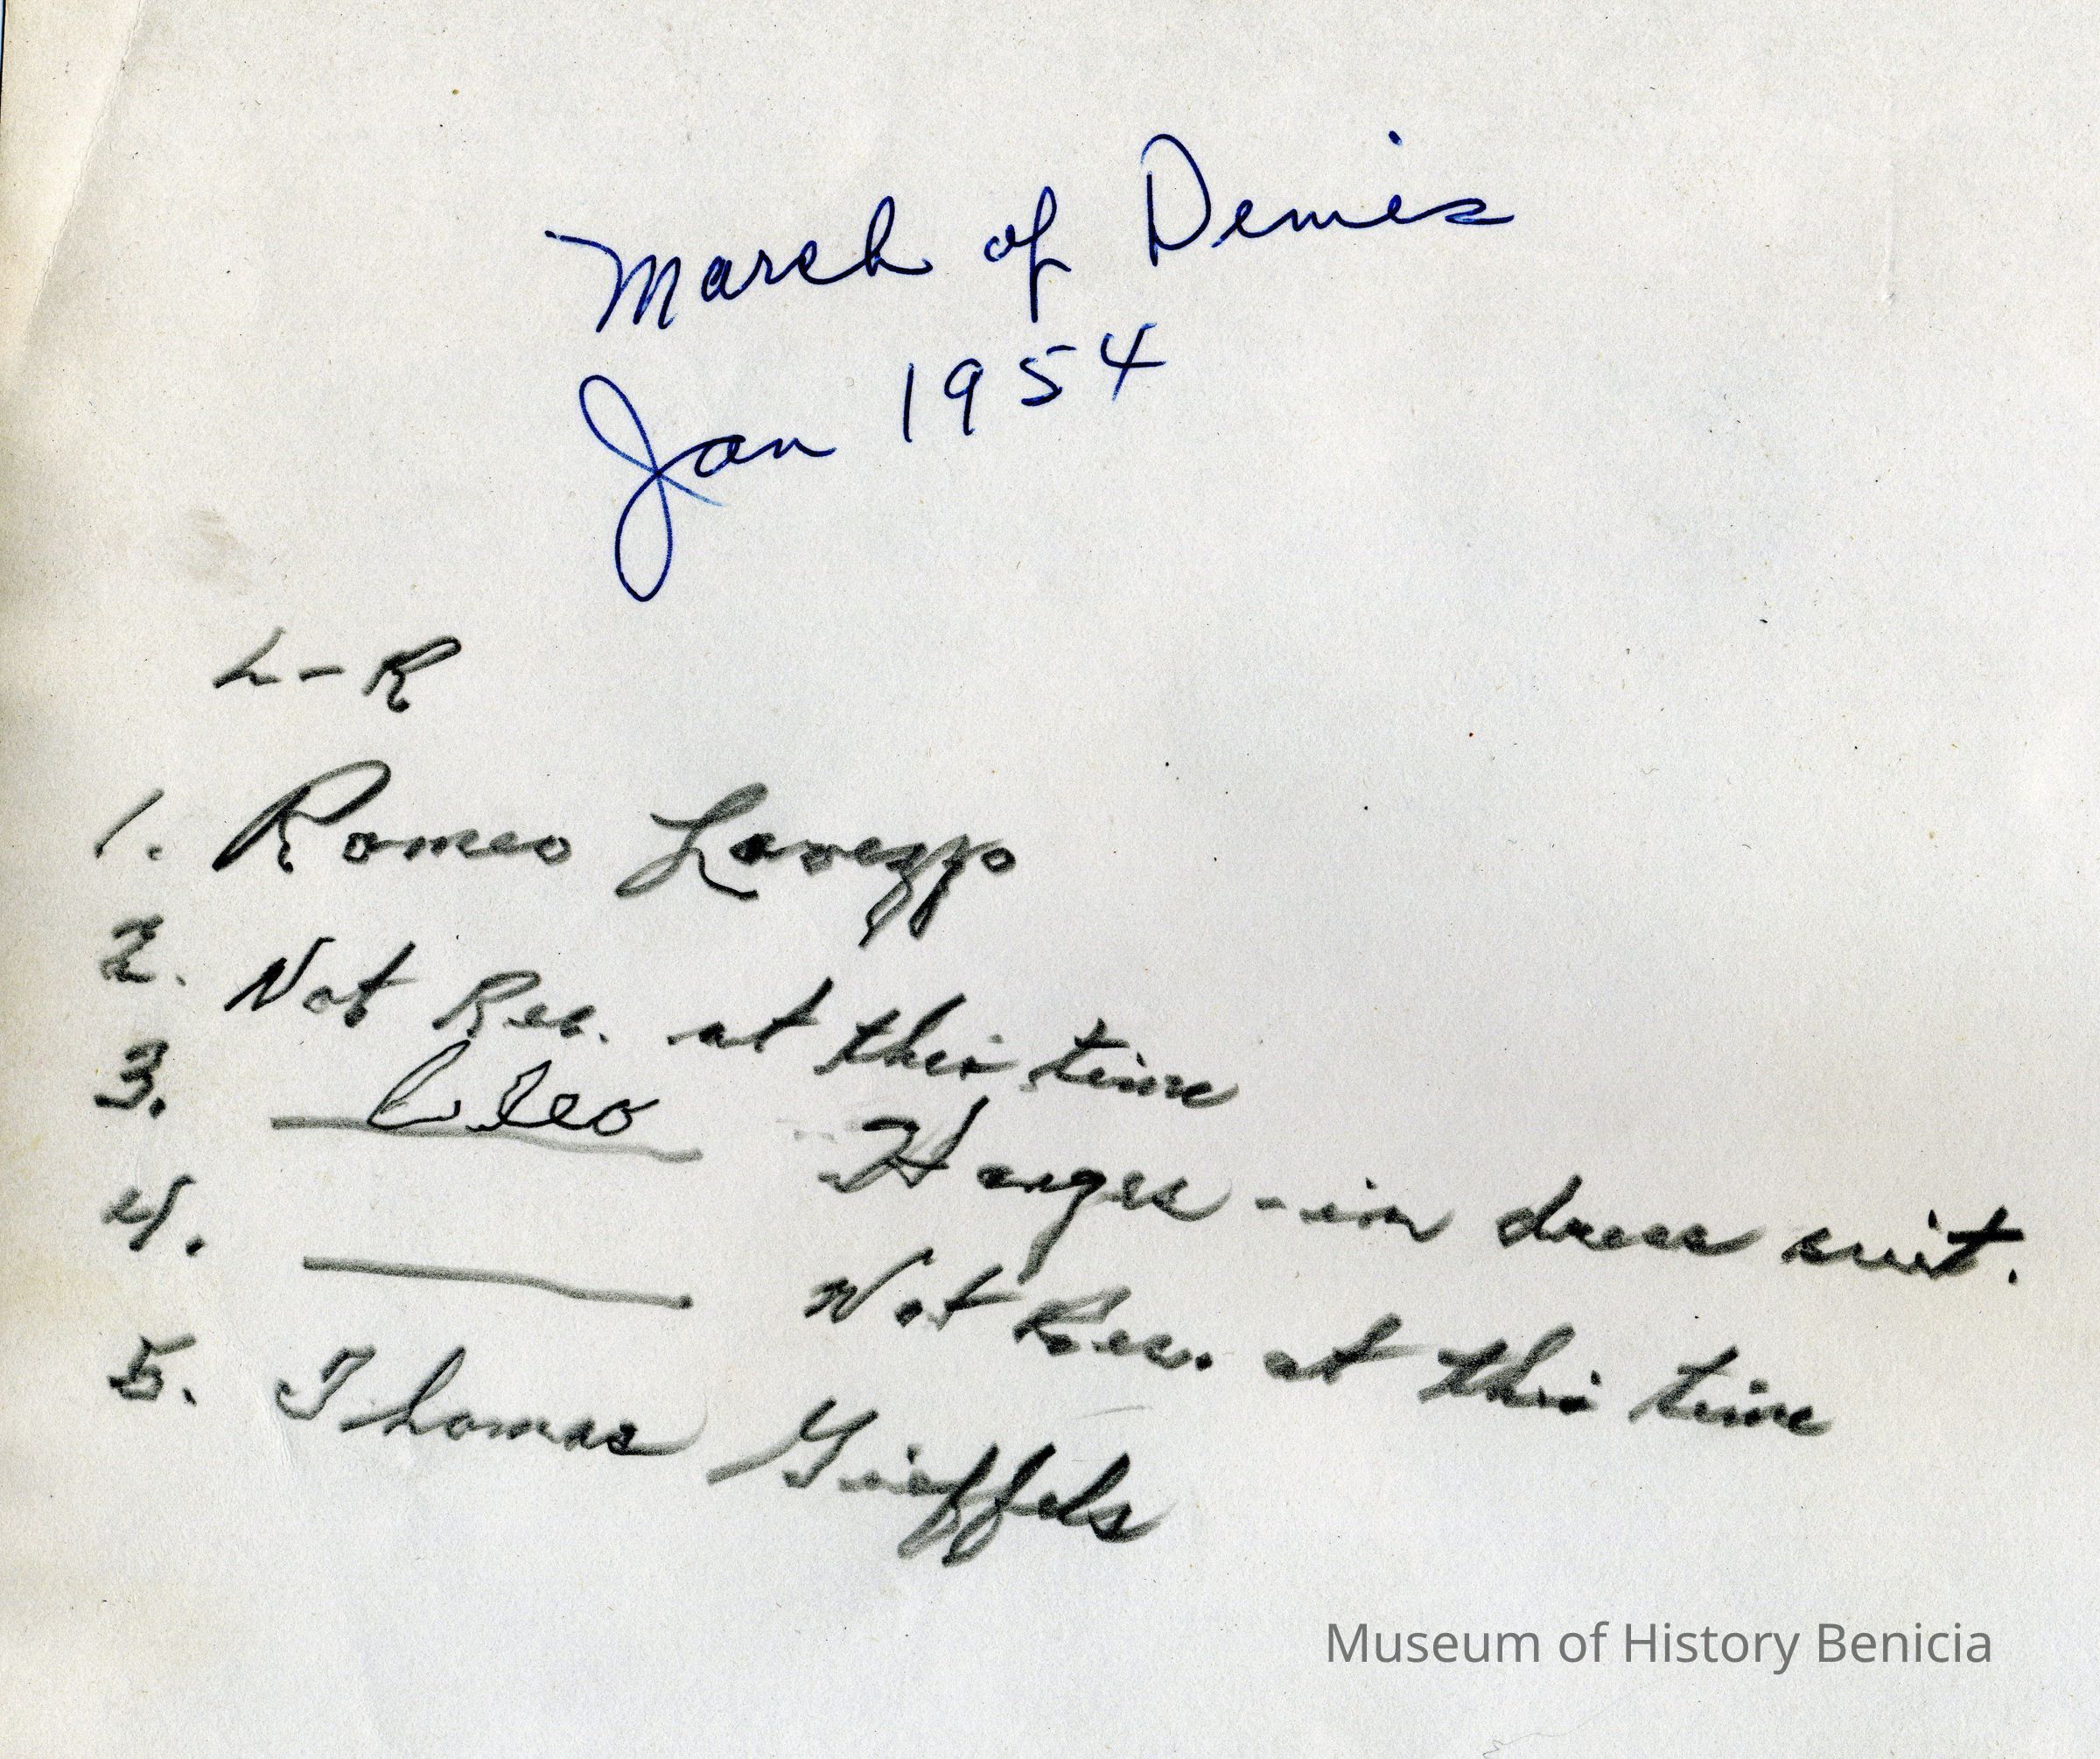 March of Demies
Jan 1954
L-R
1. Romeo Lavezzo
2. Not Rec. at this time
3. Cleo Hanges - in dress suit.
4. Not Rec. at this time
5. Thomas Gieffels
Museum of History Benicia